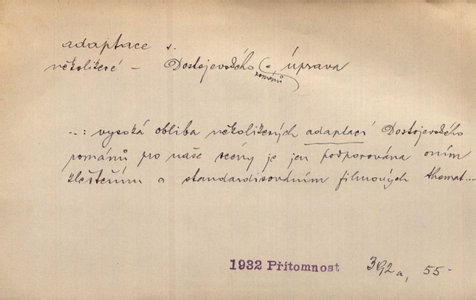 adaptace s.
několikeré – Dostojevského románů, úprava
..: vysoká obliba několikerých adaptací Dostojevského
románů pro naše scény je jen podporována oním
kleštěním a standardisováním filmových themat...
1932 Přítomnost 392a, 55-